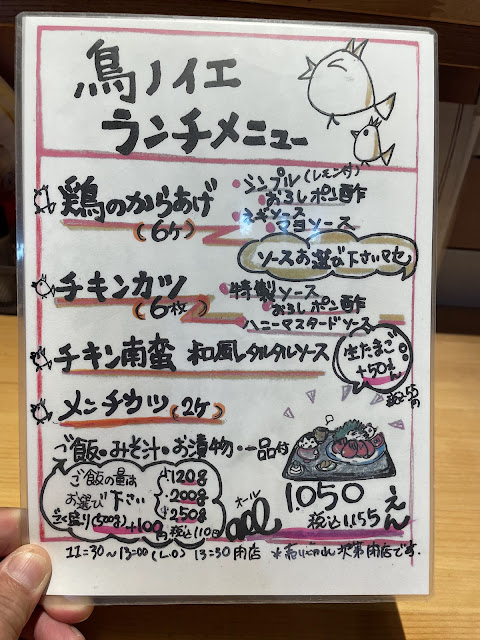 鳥ノイエ
ランチメニュー
鶏のからあげ
(6ケ)
シンプル(レモン付)
おろしポン酢
ネギソース
マヨソース
ソースお選び下さいマセ
チキンカツ
(6枚)
特製ソース
おろしポン酢
ハニーマスタードソース
チキン南蛮 和風タルタルソース
生たまご
+50えん
税込55円
メンチカツ(2ケ)
ご飯・みそ汁・お漬物・一品付
ご飯の量は
お選び下さい
小120g
200g
大250g
(500g)+100円 税込110円
オール
all
1.050えん
税込1.155
11:30~13:00(L.O) 13:30閉店
次第閉店です.